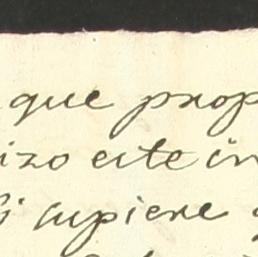 que prop
izo este in
si supiere